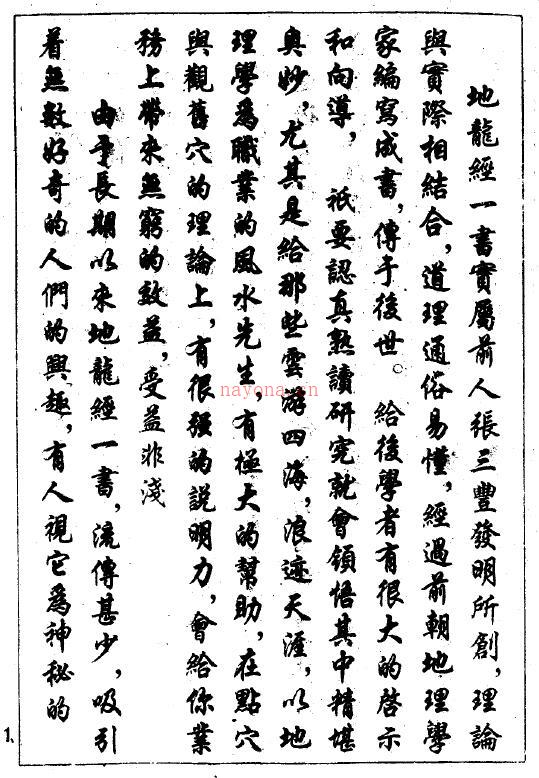 地龍經一書實屬前人張三豐發明所創，理論
與實際相結合，道理通俗易懂，經過前朝地理學
家編寫成書，傳于後世。給後學者有很大的啓示
和向導，祇要認真熟讀研究就會領悟其中精堪
奥妙，尤其是給那些雲游四海，浪迹天涯，以地
理學爲職業的風水先生，有極大的幫助，在點穴
與觀舊穴的理論上，有很强的説明力，會給你業
務上帶來無窮的效益，受益非淺
由于長期以來地龍經一書，流傳甚少，吸引
着無數好奇的人們的興趣，有人視它爲神秘的
1、
nayona.cn